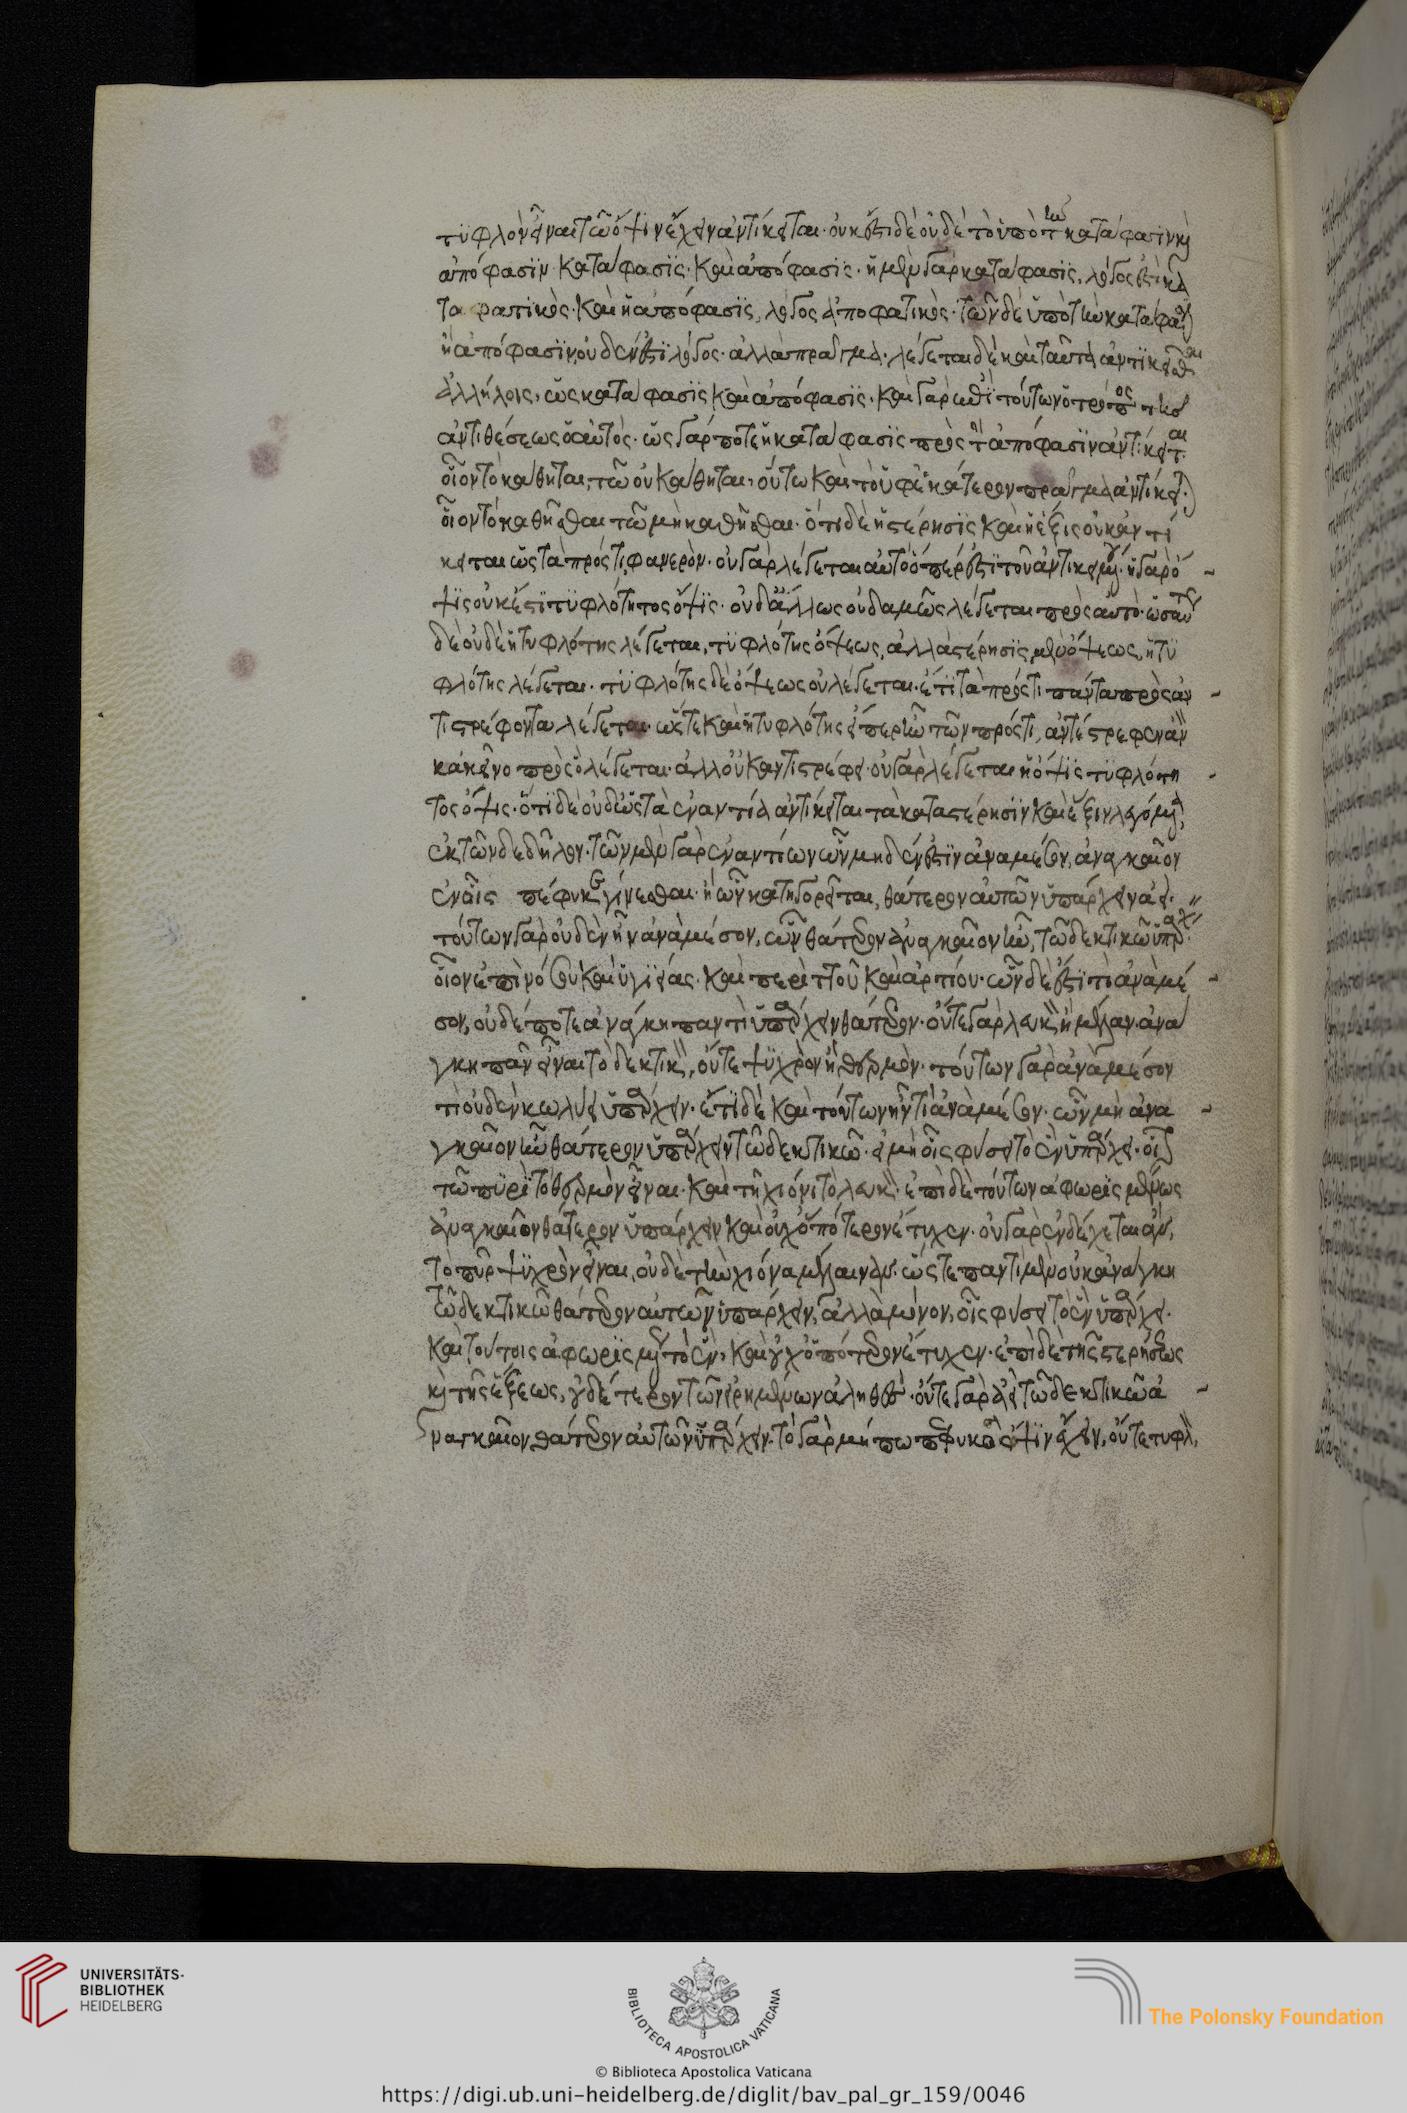 τυφλὸν εἶναι τῷ ὄψιν ἔχειν ἀντίκειται. οὐκ ἔστι δὲ οὐδὲ τὸ ὑπὸ τὴν κατάφασιν καὶ
ἀπόφασιν κατάφασις καὶ ἀπόφασις. ἡ μὲν γὰρ κατάφασις, λόγος ἐστὶ κα
ταφατικὸς. καὶ ἡ ἀπόφασις, λόγος ἀποφατικὸς. τῶν δὲ ὑπὸ τὴν κατάφασιν
ἢ ἀπόφασιν, οὐδέν ἐστι λόγος. ἀλλὰ πρᾶγμα. λέγεται δὲ καὶ ταῦτα ἀντικεῖσθαι
ἀλλήλοις, ὡς κατάφασις καὶ ἀπόφασις. καὶ γὰρ ἐπὶ τούτων ὁ τρόπος τῆς
ἀντιθέσεως ὁ αὐτός. ὡς γάρ ποτε ἡ κατάφασις πρὸς τὴν ἀπόφασιν ἀντίκειται
οἷον τὸ κάθηται, τῷ οὐ κάθηται, οὕτω καὶ τὸ ὑφ' ἑκάτερον πρᾶγμα ἀντίκειται
οἷον τὸ καθῆσθαι τῷ μὴ καθῆσθαι. ὅτι δὲ ἡ στέρησις καὶ ἡ ἕξις οὐκ ἀντί
κειται ὡς τὰ πρός τι, φανερόν. οὐ γὰρ λέγεται αὐτὸ ὅπερ ἐστὶ τοῦ ἀντικειμένου. ἡ γὰρ ὄ
ψις οὐκ ἔστι τυφλότητος ὄψις. οὐδ' ἄλλως οὐδαμῶς λέγεται πρὸς αὐτό. ὡσαύτως
δὲ οὐδὲ ἡ τυφλότης λέγεται, τυφλότης ὄψεως, ἀλλὰ στέρησις μὲν ὄψεως, ἡ τυ
φλότης λέγεται. τυφλότης δὲ ὄψεως οὐ λέγεται. ἔτι τὰ πρός τι πάντα πρὸς ἀν
τιστρέφοντα λέγεται. ὥστε καὶ ἡ τυφλότης εἴπερ ἦν τῶν πρός τι, ἀντέστρεφεν ἂν
κἀκεῖνο πρὸς ὃ λέγεται. ἀλλ' οὐκ ἀντιστρέφει. οὐ γὰρ λέγεται ἡ ὄψις τυφλότη
τος ὄψις. ὅτι δὲ οὐδ' ὡς τὰ ἐναντία ἀντίκειται τὰ κατὰ στέρησιν καὶ ἕξιν λεγόμενα,
ἐκ τῶνδε δῆλον. τῶν μὲν γὰρ ἐναντίων ὧν μηδέν ἐστιν ἀνὰ μέσον, ἀναγκαῖον
ἐν οἷς πέφυκε γίνεσθαι. ἢ ὧν κατηγορεῖται, θάτερον αὐτῶν ὑπάρχειν ἀεί.
τούτων γὰρ οὐδὲν ἦν ἀνὰ μέσον, ὧν θάτερον ἀναγκαῖον ἦν, τῷ δεκτικῷ ὑπάρχειν
οἷον ἐπὶ νόσου καὶ ὑγιείας. καὶ περιττοῦ καὶ ἀρτίου. ὧν δέ ἐστί τι ἀνὰ μέ
σον, οὐδέποτε ἀνάγκη παντὶ ὑπάρχειν θάτερον. οὔτε γὰρ λευκὸν ἢ μέλαν ἀνά
γκη πᾶν εἶναι τὸ δεκτικὸν, οὔτε ψυχρὸν ἢ θερμὸν. τούτων γὰρ ἀνὰ μέσον
τι οὐδὲν κωλύει ὑπάρχειν. ἔτι δὲ καὶ τούτων ἦν τι ἀνὰ μέσον. ὧν μὴ ἀνα
γκαῖον ἦν θάτερον ὑπάρχειν τῷ δεκτικῷ. εἰ μὴ οἷς φύσει τὸ ἓν ὑπάρχει. οἷον
τῷ πυρὶ τὸ θερμὸν εἶναι. καὶ τῇ χιόνι τὸ λευκὸν. ἐπὶ δὲ τούτων ἀφωρισμένως
ἀναγκαῖον θάτερον ὑπάρχειν καὶ οὐχ ὁπότερον ἔτυχεν. οὐ γὰρ ἐνδέχεται
τὸ πῦρ ψυχρὸν εἶναι, οὐδὲ τὴν χιόνα μέλαιναν. ὥστε παντὶ μὲν οὐκ ἀνάγκη
τῷ δεκτικῷ θάτερον αὐτῶν ὑπάρχειν, ἀλλὰ μόνον, οἷς φύσει τὸ ἓν ὑπάρχει.
καὶ τούτοις ἀφωρισμένως τὸ ἓν, καὶ οὐχ ὁπότερον ἔτυχεν. ἐπὶ δὲ τῆς στερήσεως
καὶ τῆς ἕξεως, οὐδέτερον τῶν εἰρημένων ἀληθές. οὔτε γὰρ ἀεὶ τῷ δεκτικῷ ἀ
ναγκαῖον θάτερον αὐτῶν ὑπάρχειν. τὸ γὰρ μήπω πεφυκὸς ὄψιν ἔχειν, οὔτε τυφλὸν
UNIVERSITÄTS-
BIBLIOTHEK
HEIDELBERG
BIBLIOTECA APOSTOLICA VATICANA
The Polonsky Foundation
© Biblioteca Apostolica Vaticana
https://digi.ub.uni-heidelberg.de/diglit/bav_pal_gr_159/0046